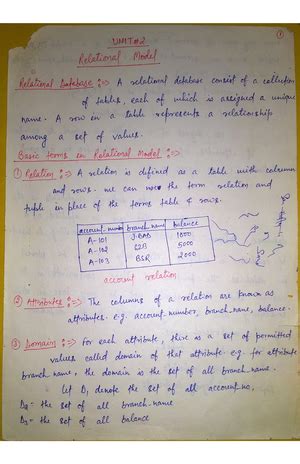 ①
UNIT-2
Relational Model
Relational Database :=> A relational database consist of a collection
of tables, each of which is assigned a unique
name. A row in a table represents a relationship
among a set of values.
Basic terms in Relational Model :=>
① Relation :=> A relation is defined as a table with columns
and rows. we can use the term relation and
tuple in place of the terms table & rows.
account_number branch_name balance
A-101 1000
A-102 5000
A-103 BSR 2000
account relation
② Attributes :=> The columns of a relation are known as
attributes. e.g. account_number, branch_name, balance.
③ Domain :=> for each attribute, there is a set of permitted
values called domain of that attribute. e.g. for attribute
branch_name, the domain is the set of all branch_name.
Let D₁ denote the set of all account_no.
D₂ = the set of all branch_name
D₃ = the set of all balance